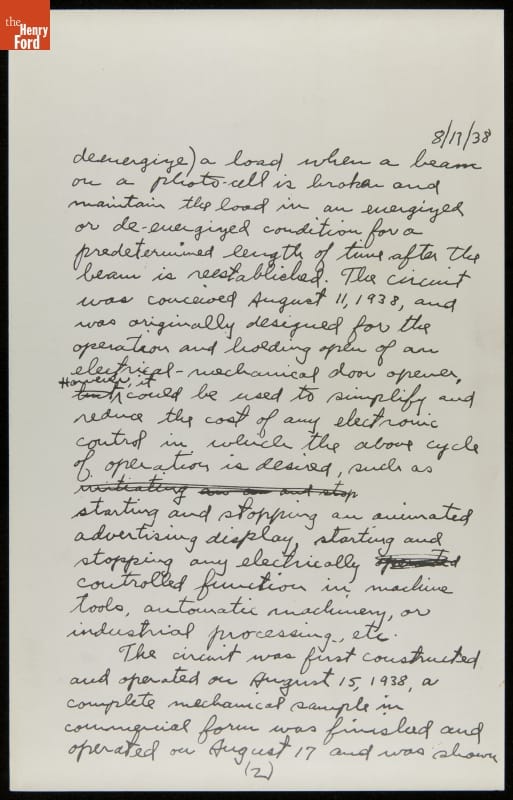 the
Henry
Ford
8/17/38
deenergize) a load when a beam
on a photo-cell is broken and
maintain the load in an energized
or de-energized condition for a
predetermined length of time after the
beam is reestablished. The circuit
was conceived August 11, 1938, and
was originally designed for the
operation and holding open of an
electrical-mechanical door opener,
However, it
but could be used to simplify and
reduce the cost of any electronic
control in which the above cycle
of operation is desired, such as
initiating an an and stop
starting and stopping an animated
advertising display, starting and
stopping any electrically operated
controlled function in machine
tools, automatic machinery, or
industrial processing, etc.
The circuit was first constructed
and operated on August 15, 1938, a
complete mechanical sample in
commercial form was finished and
operated on August 17 and was shown
(2)